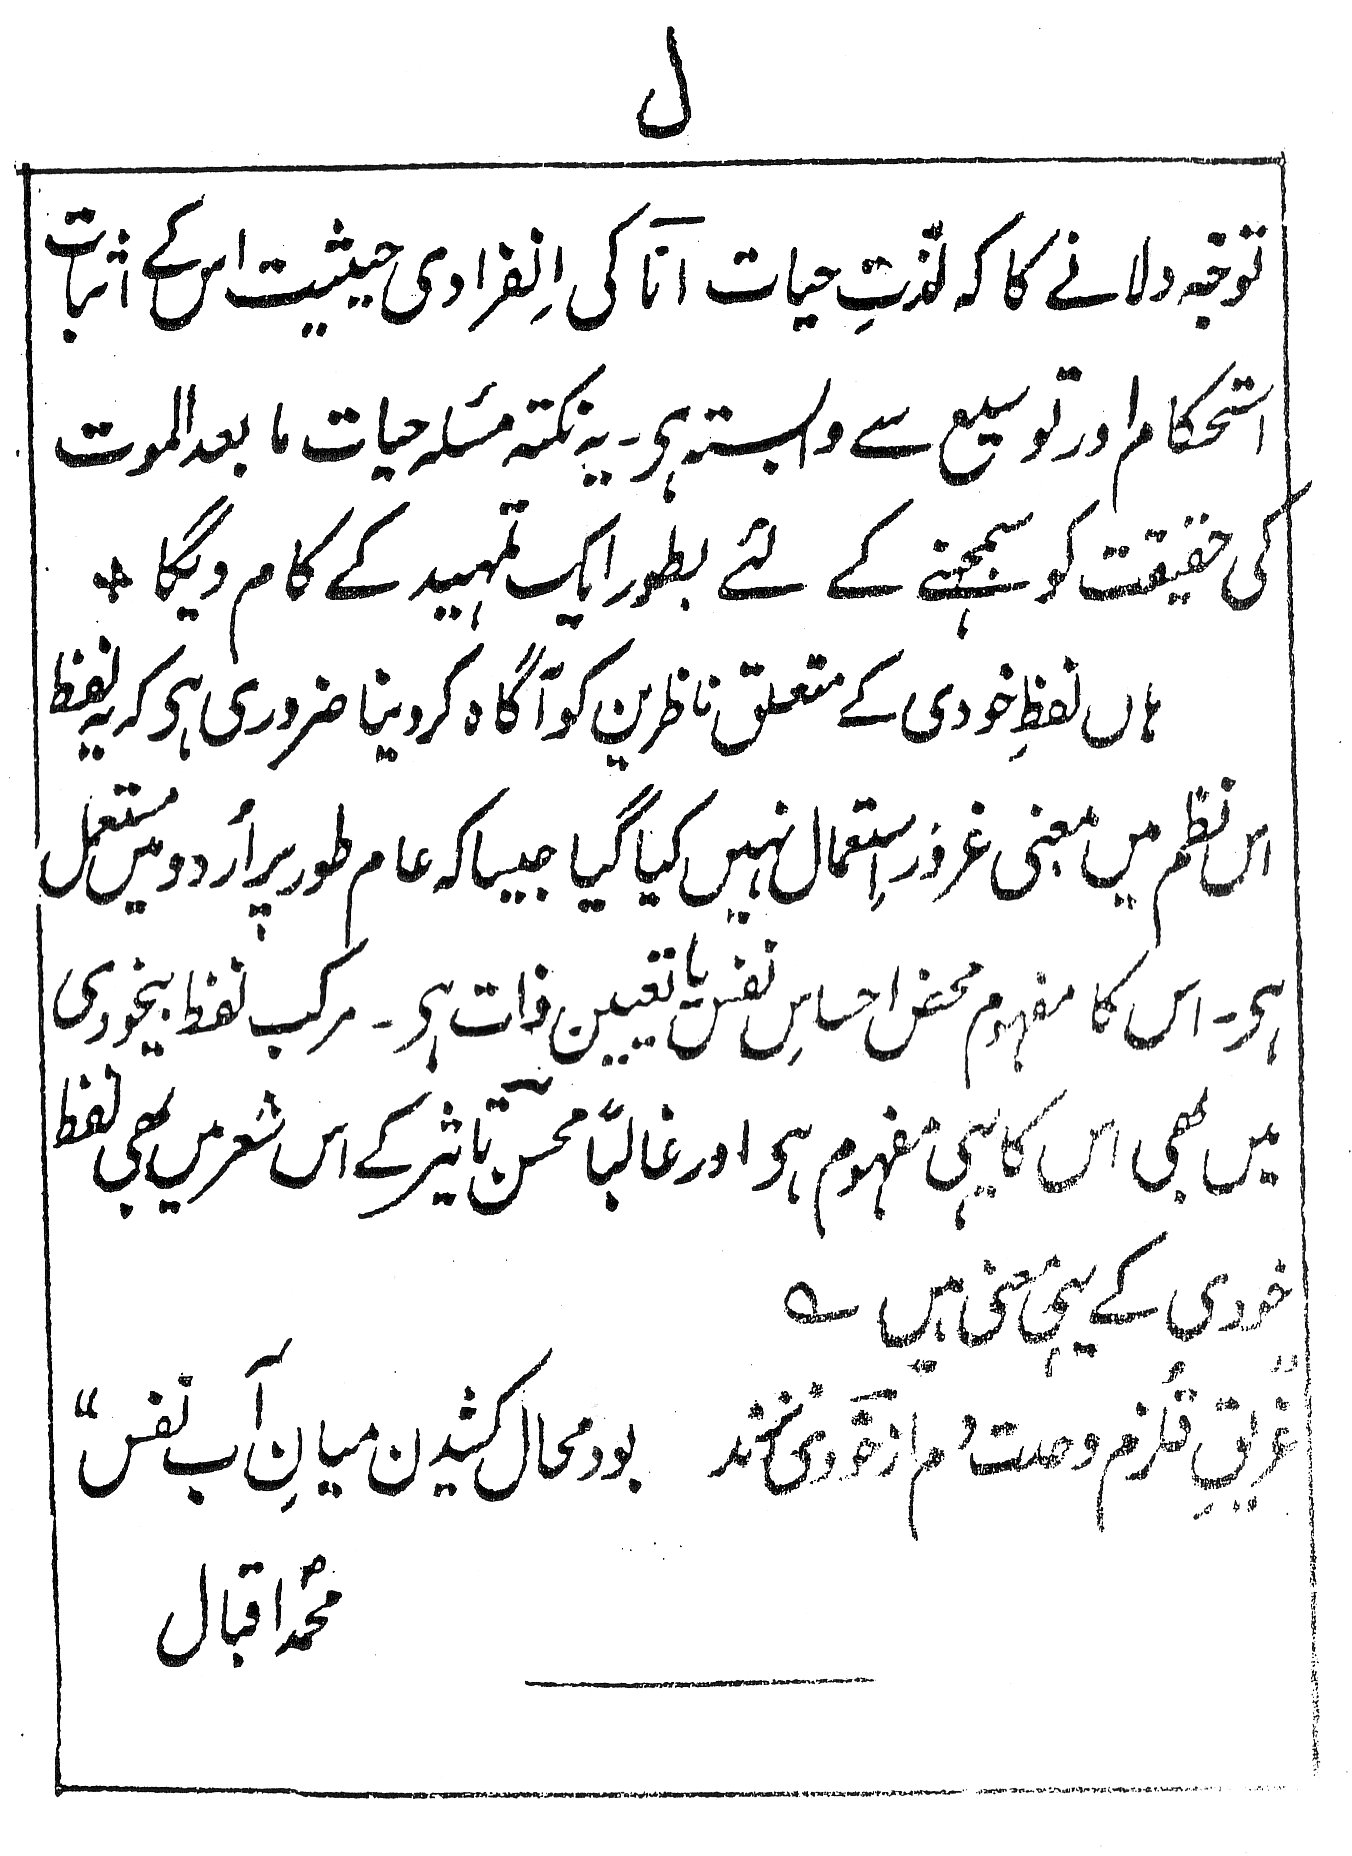 ل
توجّہ دلانے کا کہ لذّتِ حیات انا کی اِنفرادی حیثیت اس کے اثبات
استحکام اور توسیع سے وابستہ ہی۔ یہ نکتہ مسئلہ حیات ما بعد الموت
کی حقیقت کو سمجھنے کے لئے بطور ایک تمہید کے کام دیگا +
ہاں لفظِ خودی کے متعلق ناظرین کو آگاہ کردینا ضروری ہی کہ یہ لفظ
اس نظم میں بمعنی غرور اِستعمال نہیں کیا گیا جیسا کہ عام طور پر اُردو میں مستعمل
ہی۔ اس کا مفہوم محض احساسِ نفس یا تعیین ذات ہی۔ مرکب لفظ بیخودی
میں بھی اس کا یہی مفہوم ہی اور غالباً محسن تاثیر کے اس شعر میں بھی لفظ
خودی کے یہی معنی ہیں ؎
"غریقِ قلزم وحدت دم از خودی نزند بود محال کشیدن میانِ آب نفس"
محمّد اقبال